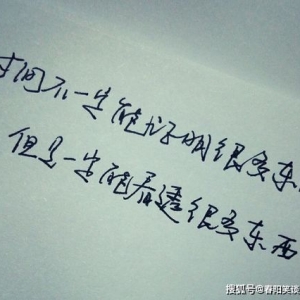 时间不一定能证明很多东
但是一定能看透很多东西
搜狐号@春阳笑谈